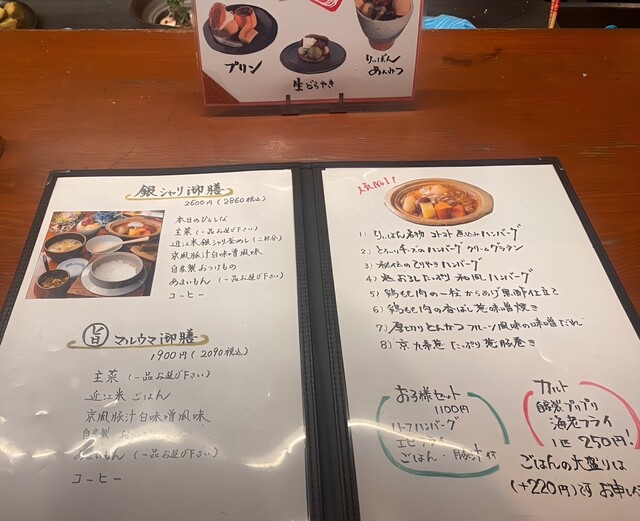 プリン
生どらやき
りっぱん
あんみつ
銀シャリ御膳
2600円(2860税込)
本日のひとしな
主菜(一品お選び下さい)
近江米銀シャリ釜めし(二杯分)
京風豚汁白味噌風味
自家製おつけもの
あまいもん(一品お選び下さい)
コーヒー
旨 マルウマ御膳
1900円(2090税込)
主菜(一品お選び下さい)
近江米ごはん
京風豚汁白味噌風味
自家製
あまいもん(一品お選び下さい)
コーヒー
人気No1!
1) りっぱん名物 コトコト煮込みハンバーグ
2) とろーりチーズのハンバーグ クリームグラタン
3) 秘伝のてりやきハンバーグ
4) おろしたっぷり 和風ハンバーグ
5) 鶏もも肉の一枚からあげ黒酢仕立て
6) 鶏もも肉の香ばし葱味噌焼き
7) 厚切りとんかつ フルーツ風味の味噌だれ
8) 京九条葱たっぷり葱豚巻き
お子様セット
1100円
ハーフハンバーグ
エビフライ
ごはん・豚汁付
自家製プリプリ
海老フライ
1匹 250円!
ごはんの大盛りは
(+220円)で